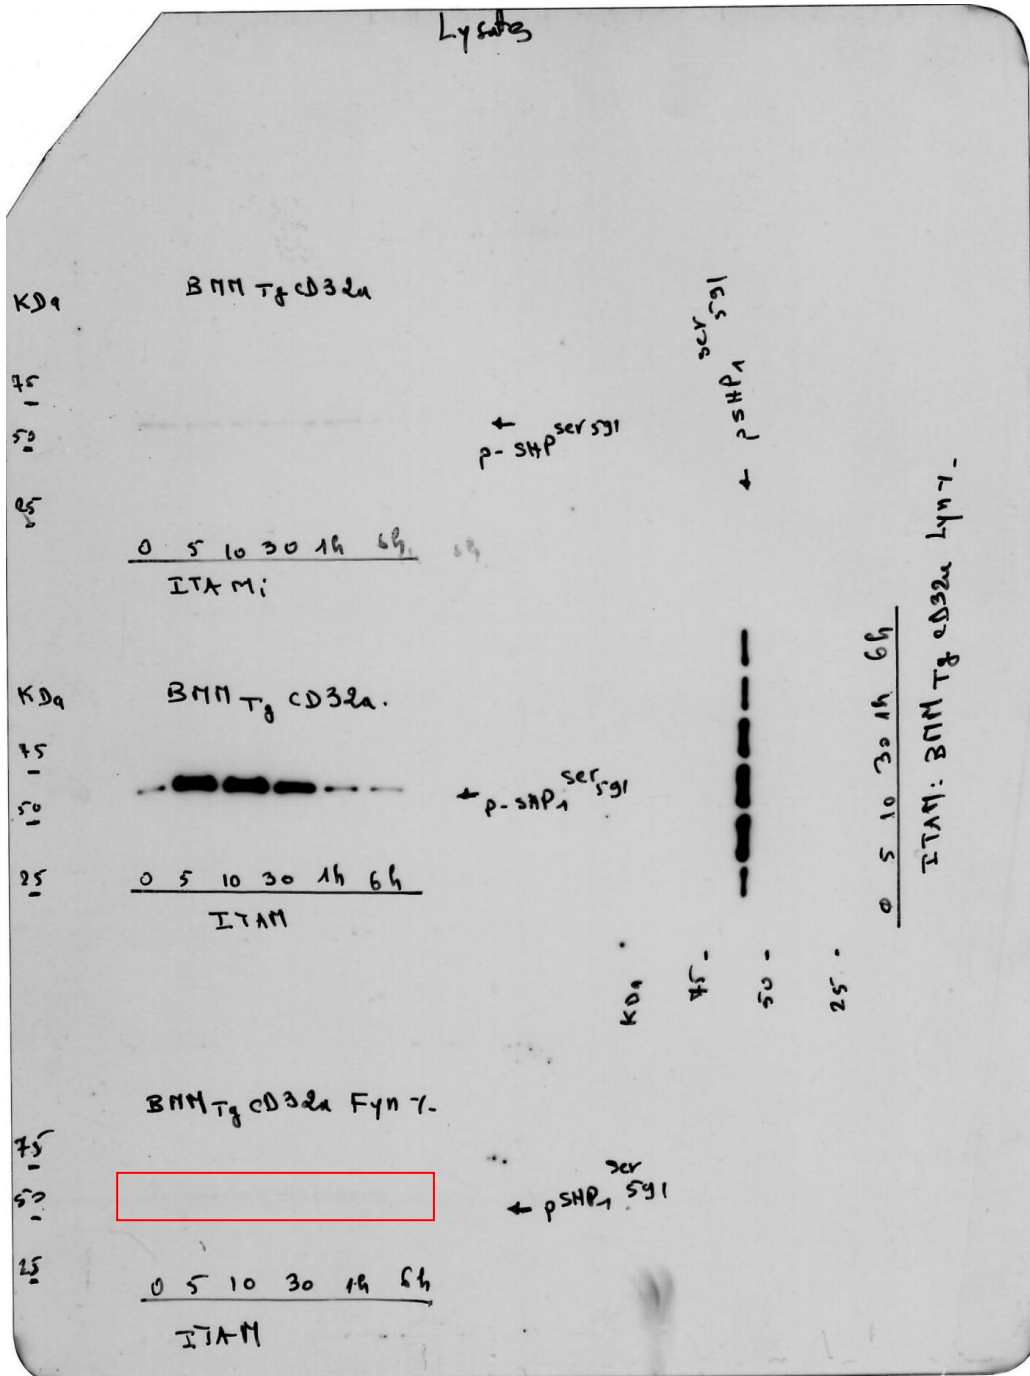 Lysates
KDa
BMM Tg CD32a
75
50
25
p-SHP ser 591
0 5 10 30 1h 6h
ITAMi
KDa
BMM Tg CD32a.
75
50
25
p-SHP1 ser 591
0 5 10 30 1h 6h
ITAM
BMM Tg CD32a Fyn -/-
75
50
25
pSHP1 ser 591
0 5 10 30 1h 6h
ITAM
pSHP1 ser 591
KDa
75 -
50 -
25 -
0 5 10 30 1h 6h
ITAM: BMM Tg CD32a Lyn -/-